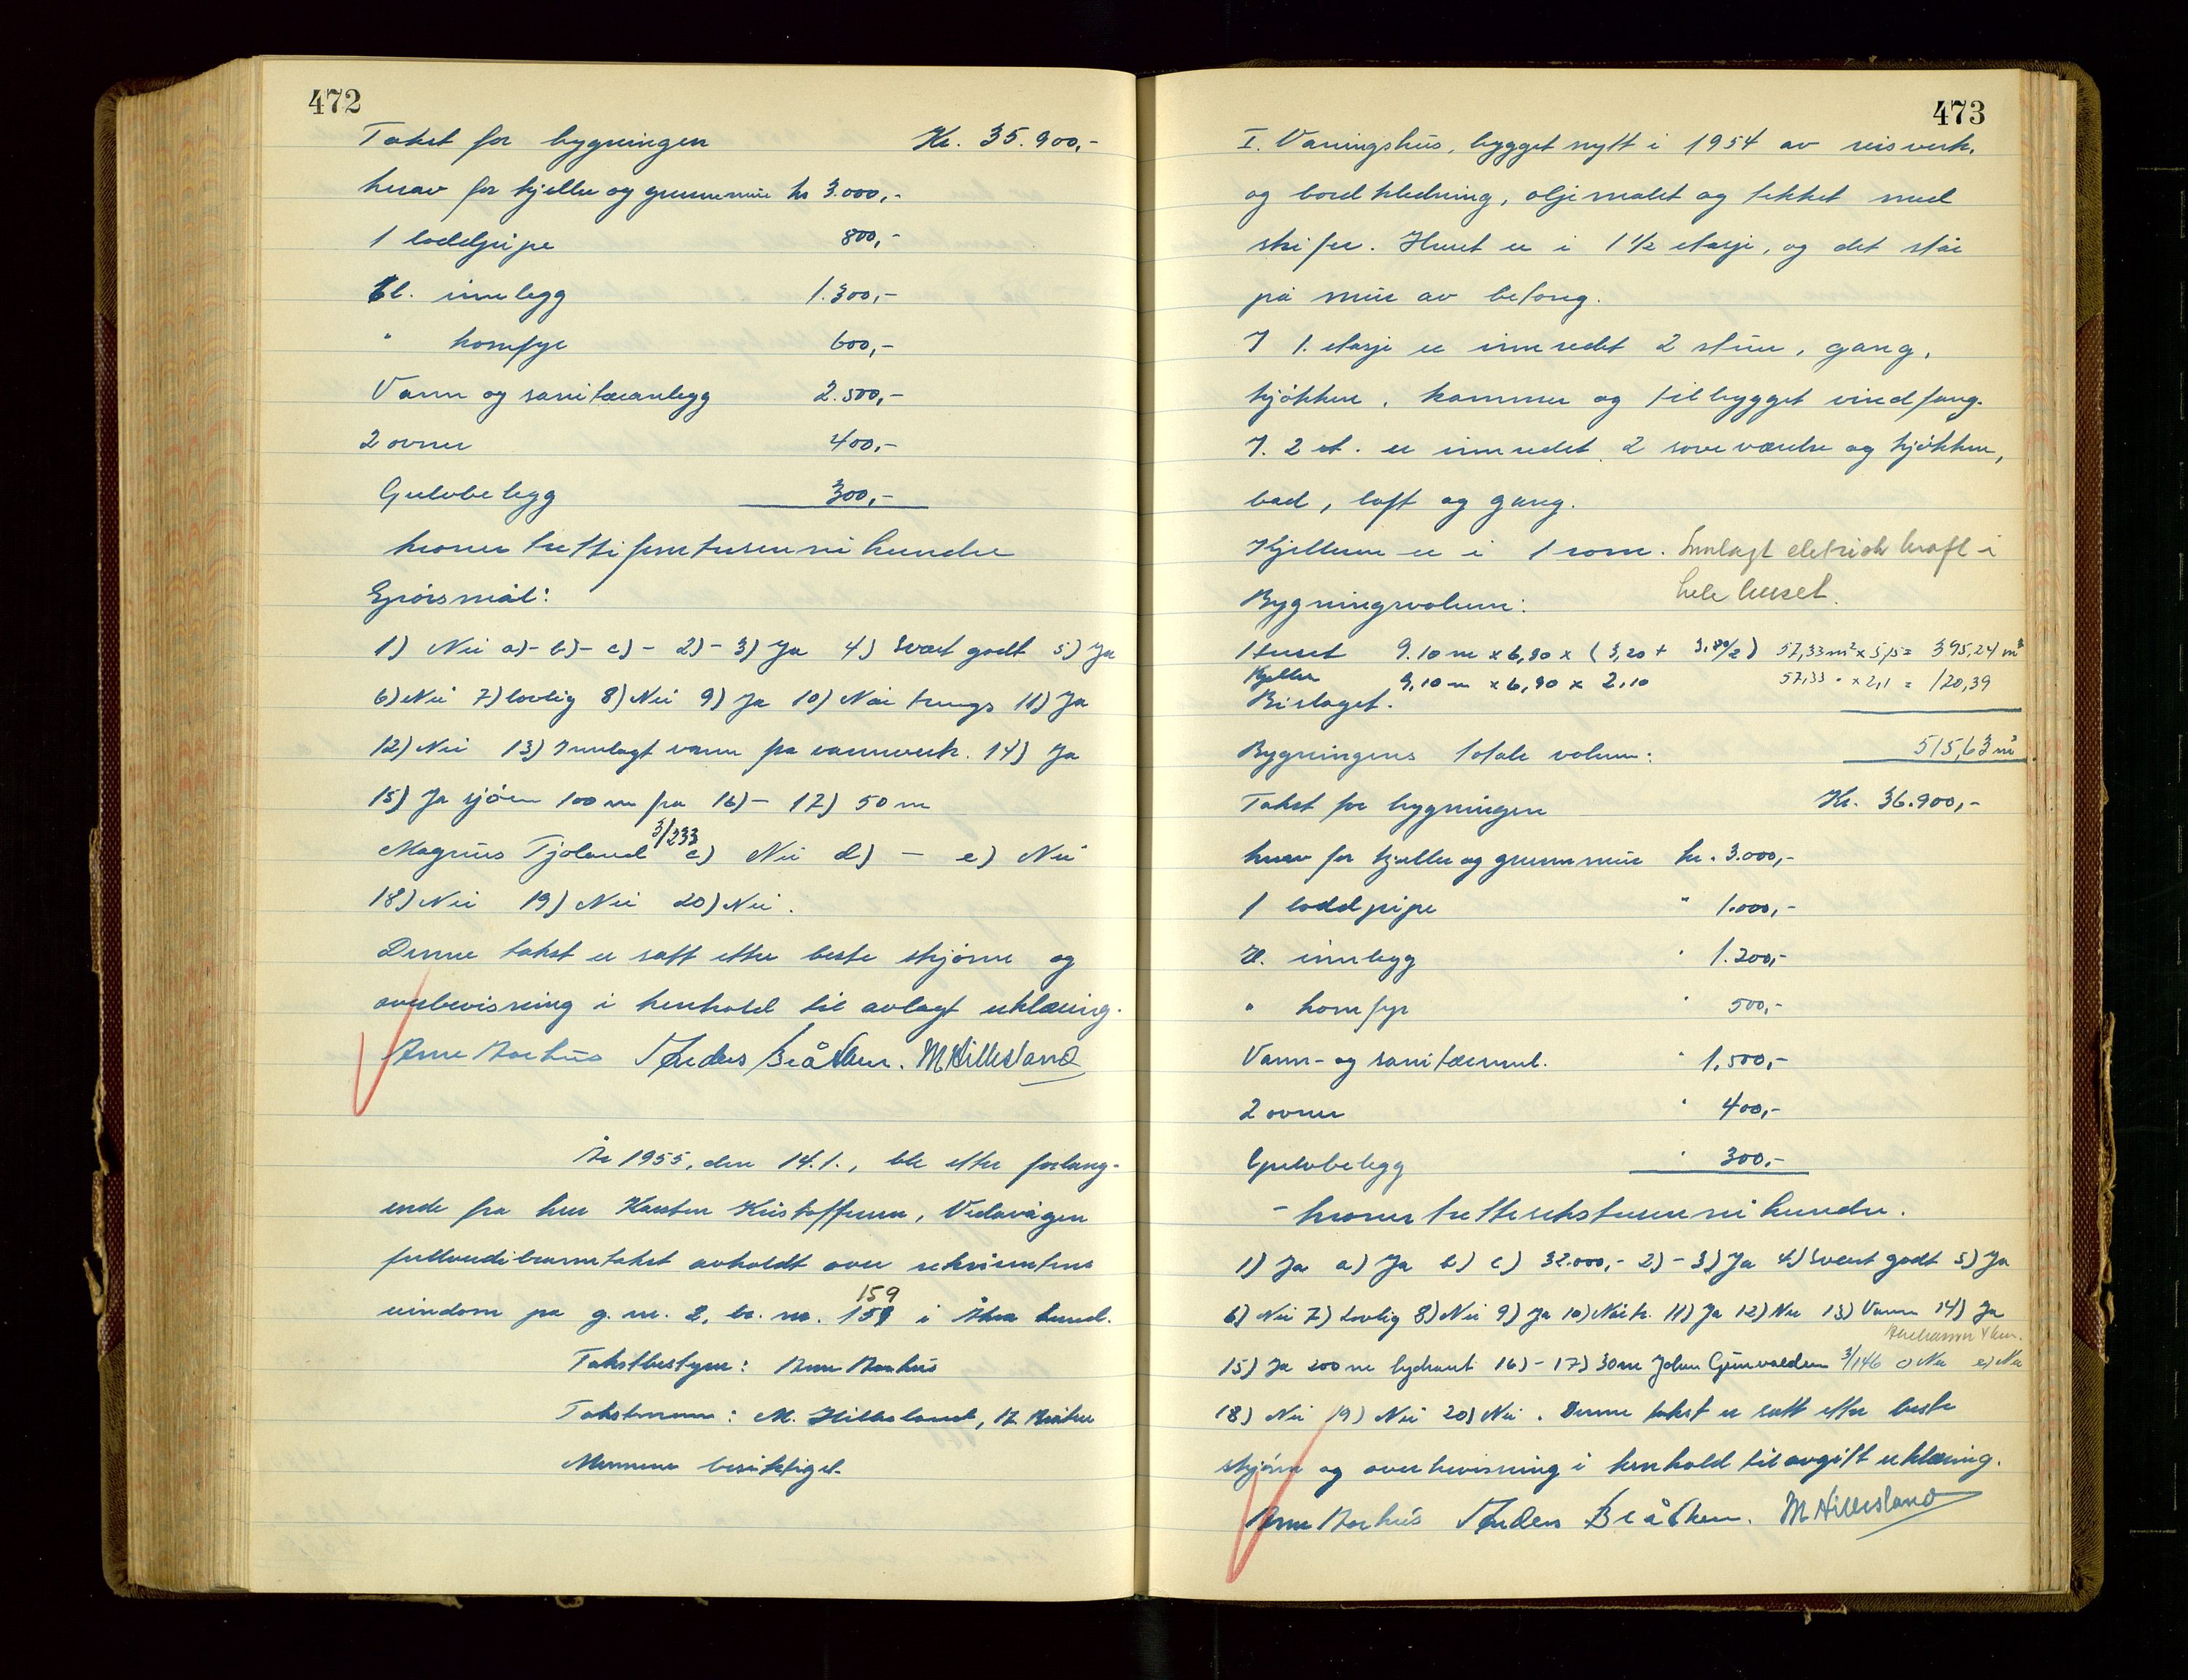 472
Takst for bygningen Kr. 35.900,-
herav for kjeller og grunnmur kr 3.000,-
1 loddpipe 800,-
El. innlegg 1.300,-
" komfyr 600,-
Vann og sanitæranlegg 2.500,-
2 ovner 400,-
Gulvbelegg 300,-
kroner trettifemtusennihundre
Spørsmål:
1) Nei a)- b)- c)- 2)- 3) Ja 4) Svært godt 5) Ja
6) Nei 7) lovlig 8) Nei 9) Ja 10) Når trengs 11) Ja
12) Nei 13) Innlagt vann fra vannverk. 14) Ja
15) Ja sjøen 100 m fra 16)- 17) 50 m
Magnus Tjøland 3/233 c) Nei d) - e) Nei
18) Nei 19) Nei 20) Nei.
Denne takst er satt etter beste skjønn og
overbevisning i henhold til avlagt erklæring.
Arne Aarhus Anders Bråthen. M Hillesland
År 1955, den 14.1., ble etter forlang-
ende fra herr Karsten Kristoffersen, Vedavågen
fullverdibranntakst avholdt over rekvirentens
eiendom på g.nr. 2, br. nr. 159 159 i Åkra herred.
Takstbestyrer: Arne Aarhus
Takstmenn: M. Hillesland, A. Bråthen
Mennene besiktiget.
473
I. Våningshus, bygget nytt i 1954 av reisverk,
og bordkledning, oljemalet og tekket med
skifer. Huset er i 1 1/2 etasje, og det står
på mur av betong.
I 1. etasje er innredet 2 stuer, gang,
kjøkken, kammer og tilbygget vindfang.
I. 2 et. er innredet 2 soveværelse og kjøkken,
bad, loft og gang.
Kjelleren er i 1 rom. Innlagt eletrisk kraft i
hele huset.
Bygningsvolum:
Huset 9.10 m x 6,30 x (3,20 + 3,80/2) 57,33 m² x 5,15 = 395,24 m³
Kjeller 9,10 m x 6,30 x 2,10 57,33 " x 2,1 = 120,39
Bislaget.
Bygningens totale volum: 515,63 m³
Takst for bygningen Kr. 36.900,-
herav for kjeller og grunnmur kr. 3.000,-
1 loddpipe " 1.000,-
El. innlegg " 1.200,-
" komfyr " 500,-
Vann- og sanitæranl. " 1.500,-
2 ovner " 400,-
Gulvbelegg " 300,-
- kroner trettisekstusennihundre.
1) Ja a) Ja b) c) 32.000,- 2)- 3) Ja 4) Svært godt 5) Ja
6) Nei 7) Lovlig 8) Nei 9) Ja 10) Når tr. 11) Ja 12) Nei 13) Vann 14) Ja
15) Ja 200 m hydrant 16)- 17) 30 m Johan Gunvaldsen 3/146 c) Nei e) Nei
18) Nei 19) Nei 20) Nei. Denne takst er satt etter beste
skjønn og overbevisning i henhold til avgift erklæring.
Arne Aarhus Anders Bråthen. M Hillesland